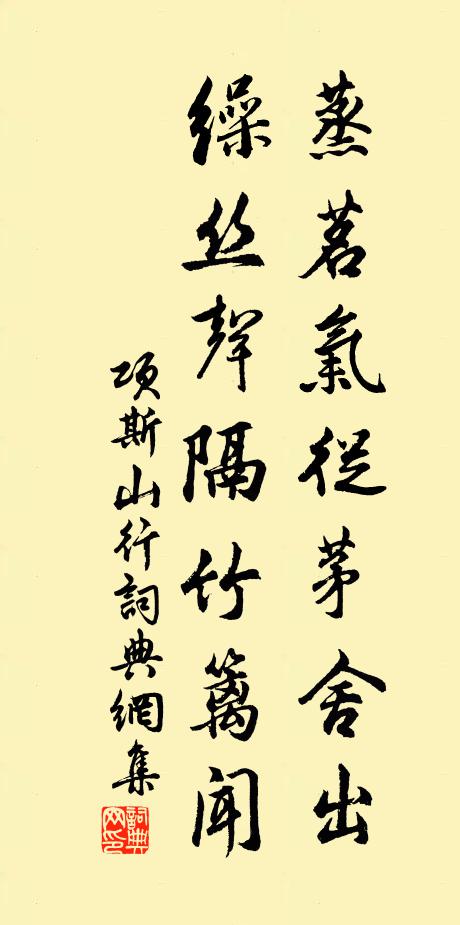 蒸茗氣從茅舍出
繰丝聲隔竹籬聞
項斯山行詞典網集
詞典网印